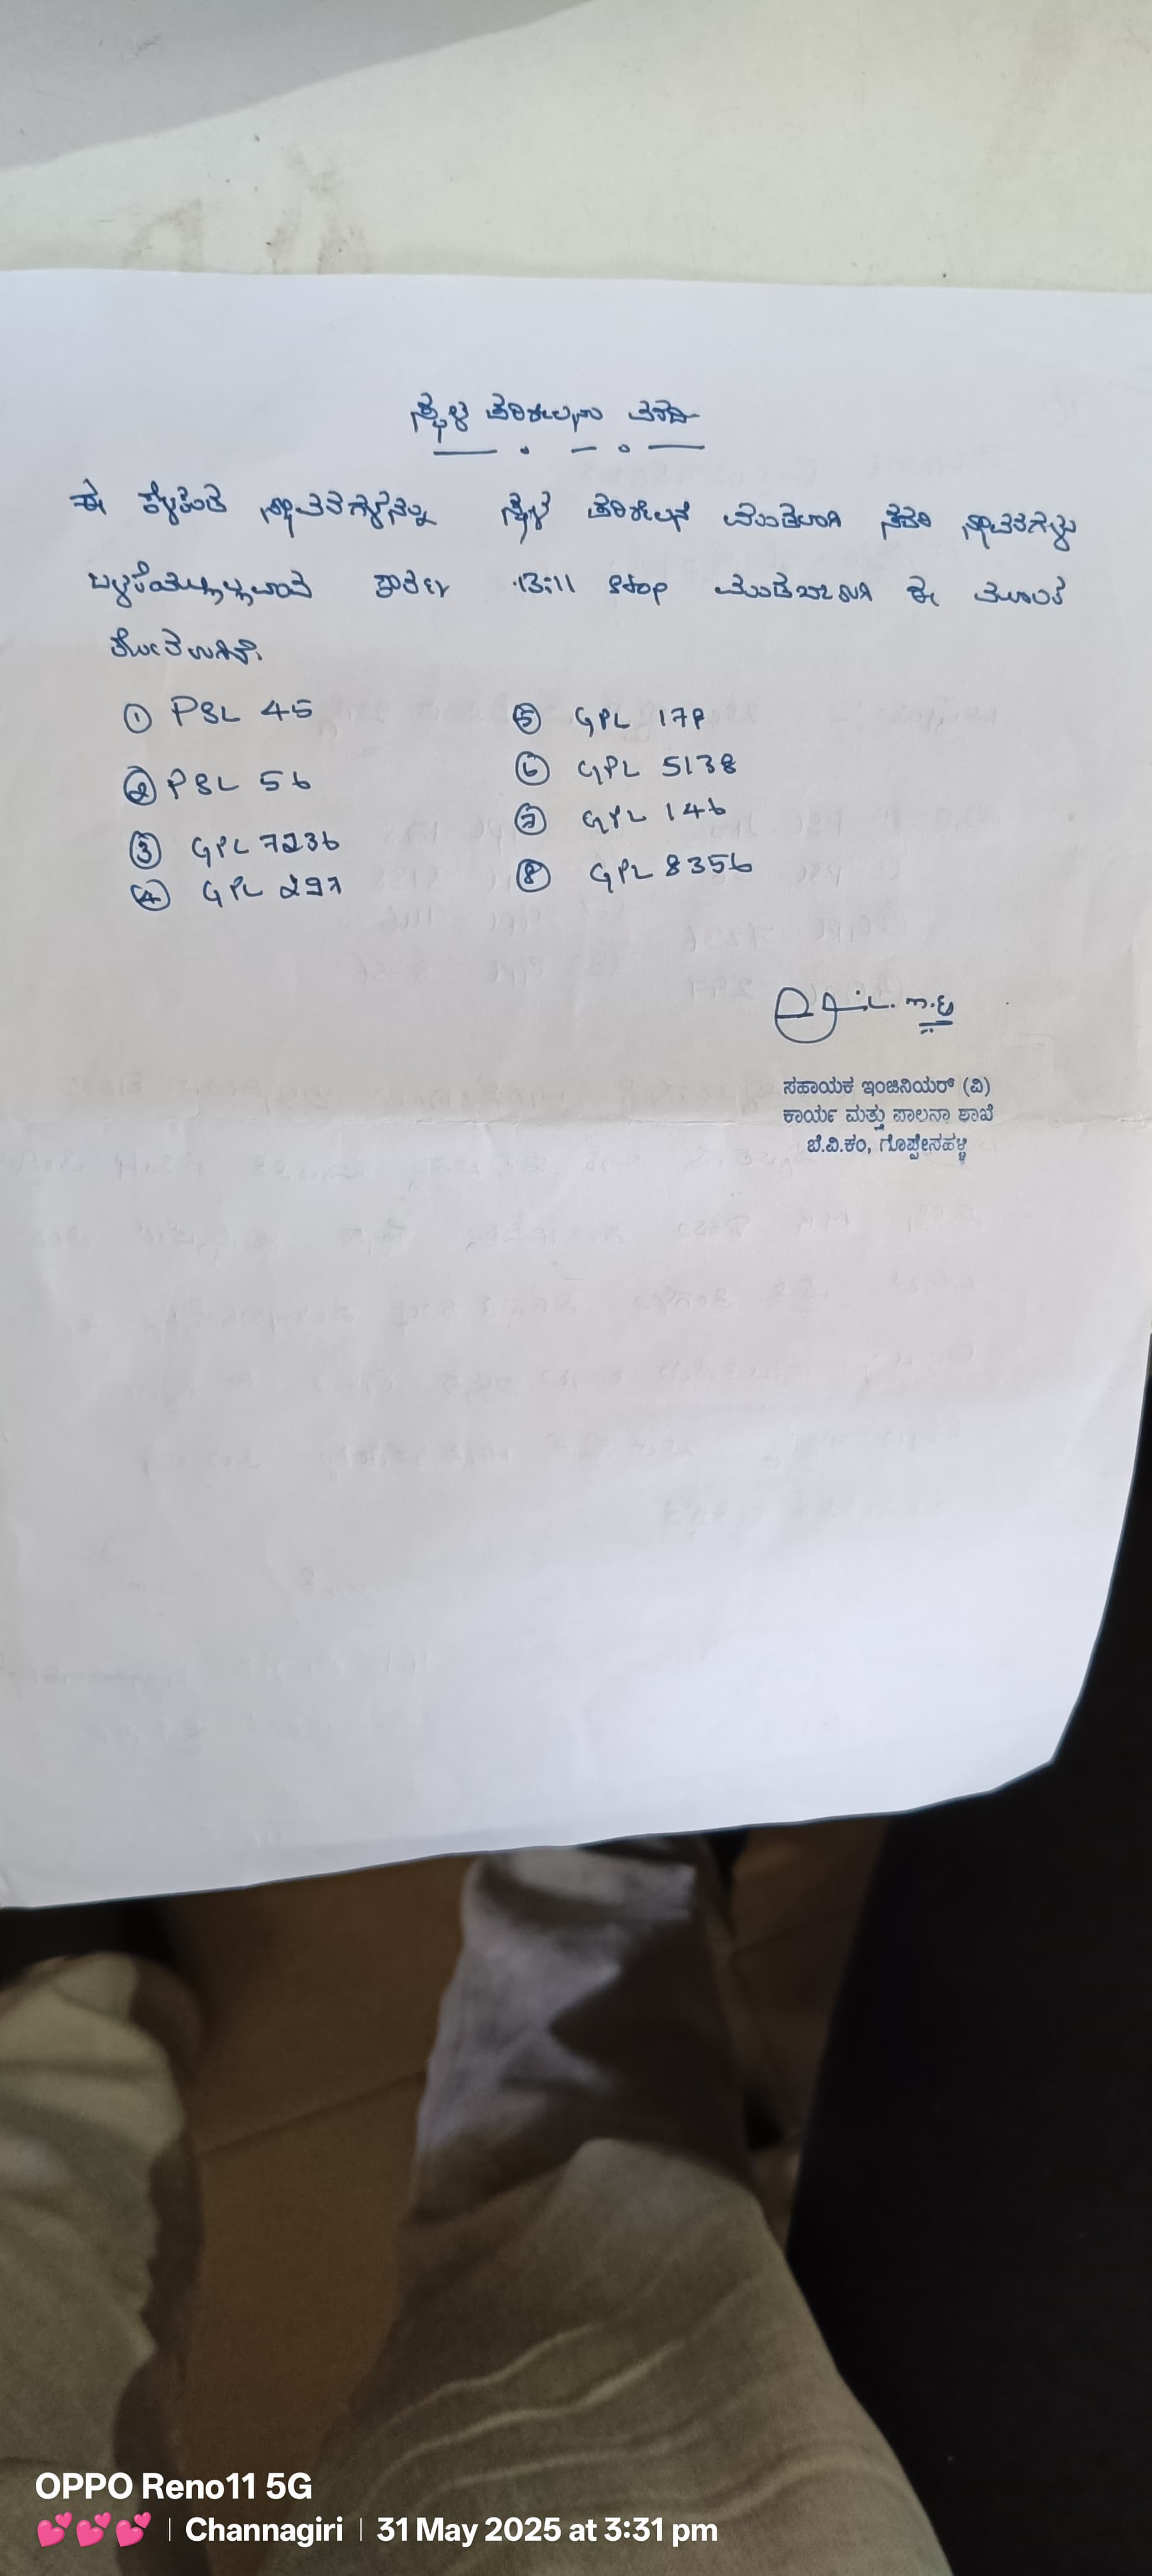 ಸ್ಥಳ ಪರಿಶೀಲನಾ ವರದಿ
ಈ ಕೆಳಕಂಡ ಸ್ಥಾವರಗಳನ್ನು ಸ್ಥಳ ಪರಿಶೀಲನೆ ಮಾಡಲಾಗಿ ಸದರಿ ಸ್ಥಾವರಗಳು
13:11 ಈ ಮೂಲಕ
① PSL 45
② PSL 56
③ GPL 7236
④ GPL 297
⑤ GPL 178
⑥ GPL 5138
⑦ GPL 146
⑧ GPL 8356
ಸಹಾಯಕ ಇಂಜಿನಿಯರ್ (ವಿ)
ಕಾರ್ಯ ಮತ್ತು ಪಾಲನಾ ಶಾಖೆ
ಬೆ.ವಿ.ಕಂ, ಗೊಪ್ಪೇನಹಳ್ಳಿ
OPPO Reno11 5G
💕💕💕 | Channagiri | 31 May 2025 at 3:31 pm